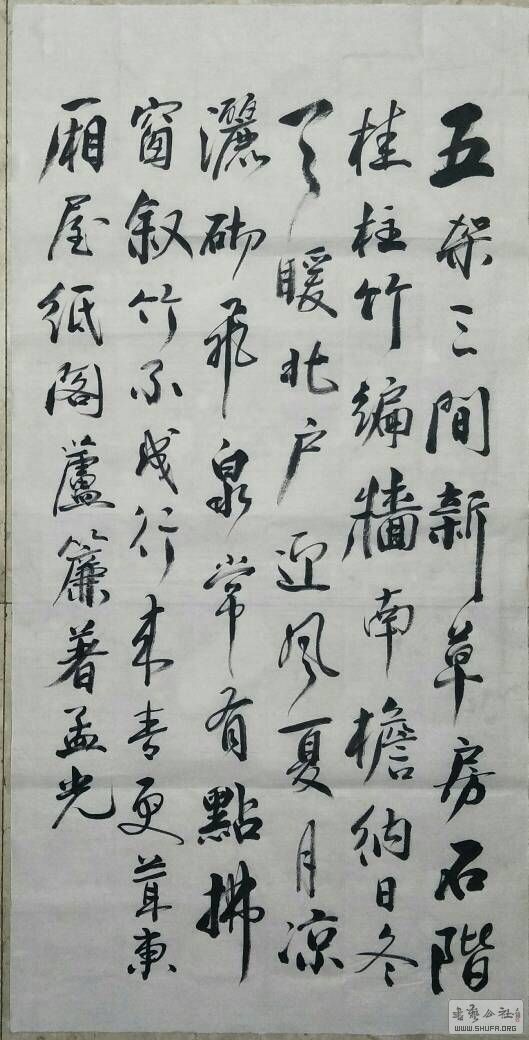 五架三間新草房石階
桂柱竹編牆南檐納日冬
天暖北户迎风夏月凉
灑砌飛泉常有點拂
窗斜竹不成行来春更葺東
厢屋紙閣蘆簾著孟光
書藝公社
WWW.SHUFA.ORG